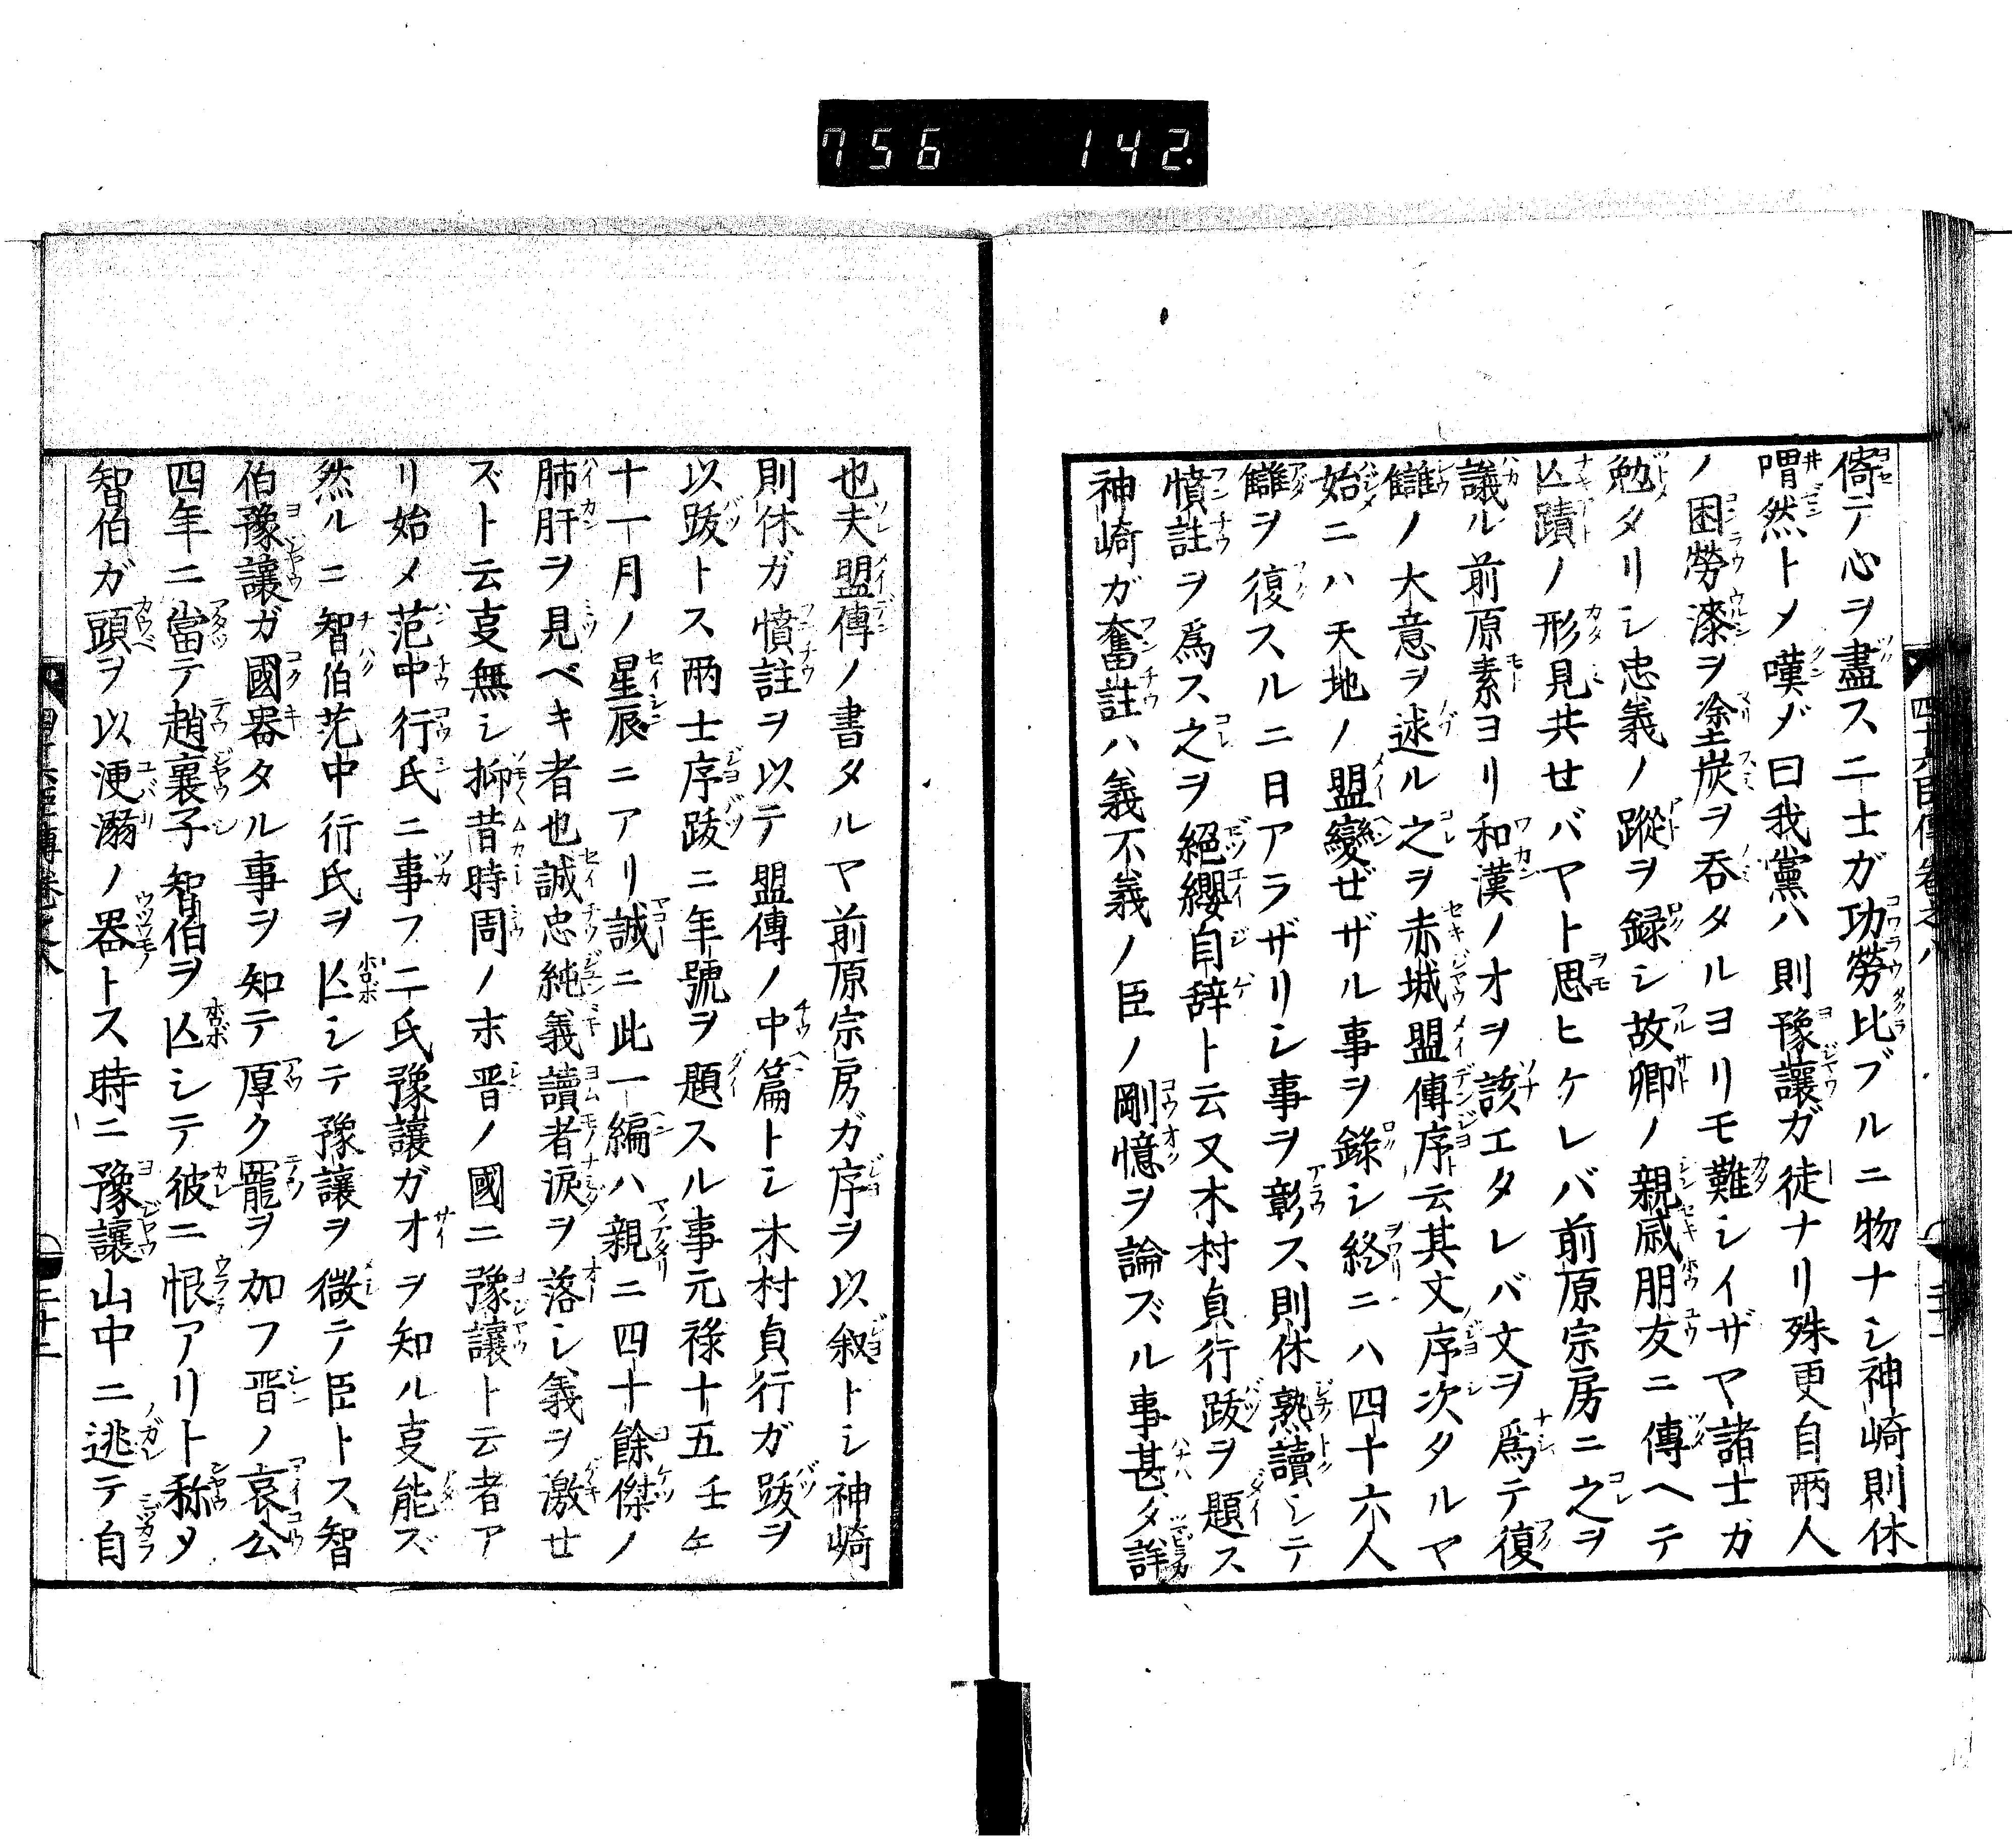 756 142.
倚テ心ヲ盡ス二士ガ功勞比ブルニ物ナシ神崎則休
喟然トメ嘆ジ曰我黨ハ則豫讓ガ徒ナリ殊更自兩人
ノ困勞漆ヲ塗炭ヲ呑タルヨリモ難シイザヤ諸士ガ
勉タリシ忠義ノ蹤ヲ録シ故郷ノ親戚朋友ニ傳ヘテ
亾蹟ノ形見共セバヤト思ヒケレバ前原宗房ニ之ヲ
議ル前原素ヨリ和漢ノオヲ該エタレバ文ヲ爲テ復
讎ノ大意ヲ述ル之ヲ赤城盟傳序ト云其文序次タルヤ
始ニハ天地ノ盟變ゼザル事ヲ錄シ終ニハ四十六人
讎ヲ復スルニ日アラザリシ事ヲ彰ス則休熟讀シテ
憤註ヲ爲ス之ヲ絕纓自辞ト云又木村貞行跋ヲ題ス
神崎ガ奮註ハ義不義ノ臣ノ剛憶ヲ論ズル事甚ダ詳
四十六臣傳卷之八
也夫盟傳ノ書タルヤ前原宗房ガ序ヲ以叙トシ神崎
則休ガ憤註ヲ以テ盟傳ノ中篇トシ木村貞行ガ跋ヲ
以跋トス兩士序跋ニ年號ヲ題スル事元祿十五壬午
十一月ノ星辰ニアリ誠ニ此一編ハ親ニ四十餘傑ノ
肺肝ヲ見ベキ者也誠忠純義讀者涙ヲ落シ義ヲ激せ
ズト云叓無シ抑昔時周ノ末晋ノ國ニ豫讓ト云者ア
リ始メ范中行氏ニ事フ二氏豫讓ガオヲ知ル叓能ズ
然ルニ智伯范中行氏ヲ亾シテ豫讓ヲ徴テ臣トス智
伯豫讓ガ國器タル事ヲ知テ厚ク寵ヲ加フ晋ノ哀公
四年ニ當テ趙襄子智伯ヲ亾シテ彼ニ恨アリト称タ
智伯ガ頭ヲ以溲溺ノ器トス時ニ豫讓山中ニ逃テ自